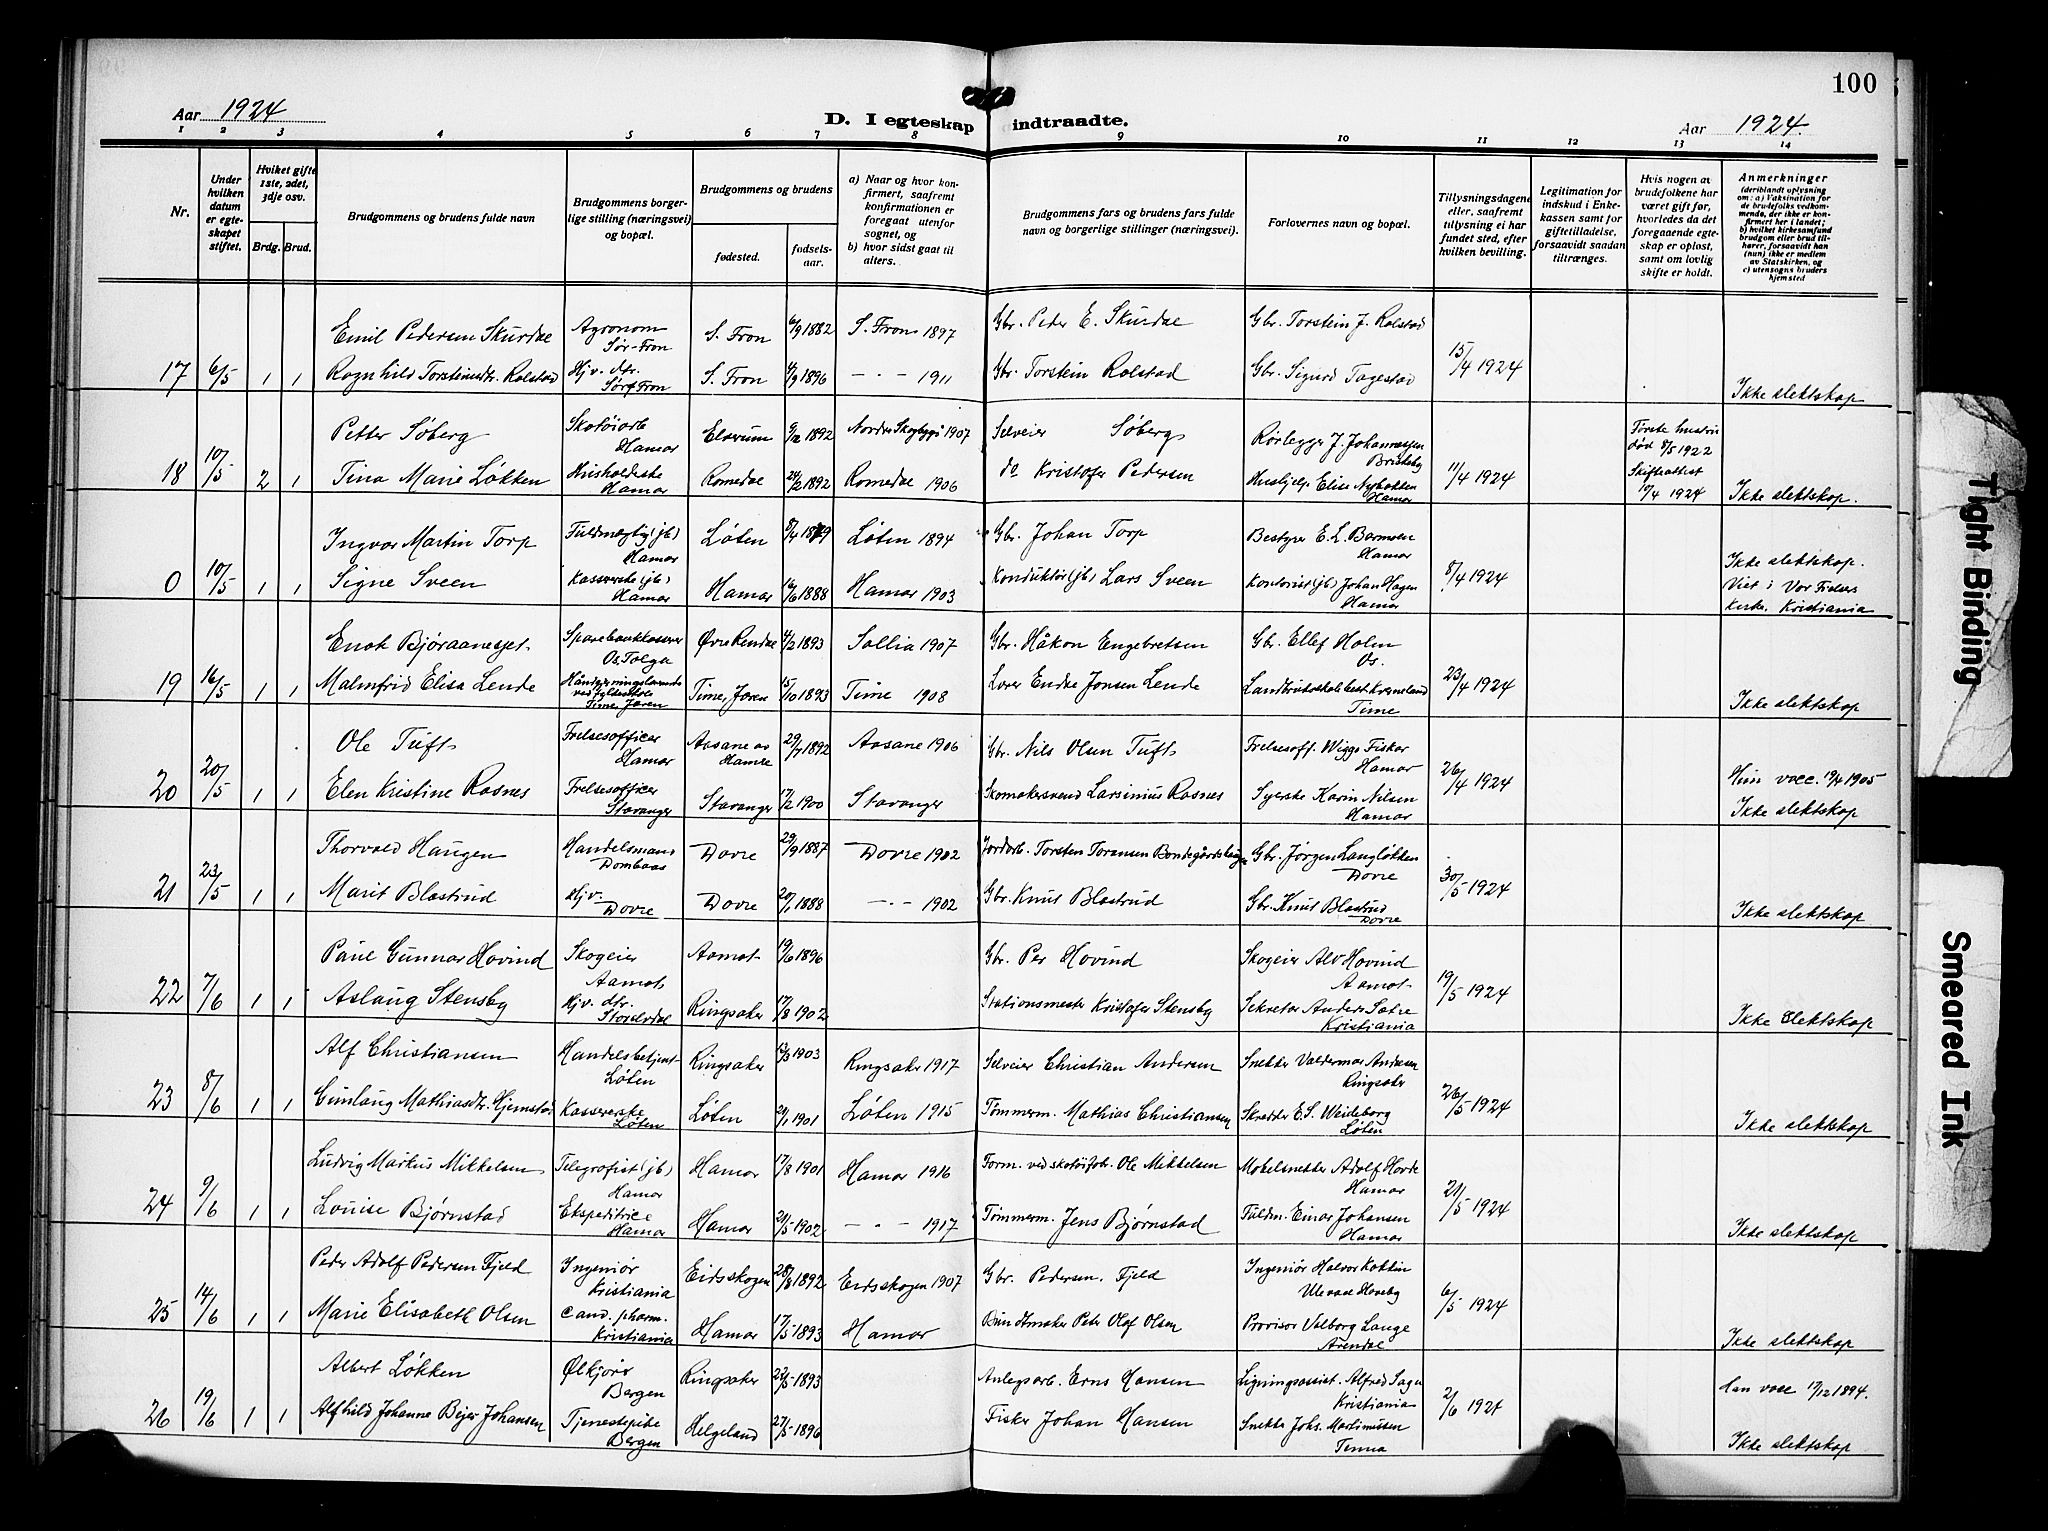 100
Aar 1924
D. I egteskap indtraadte.
Aar 1924.
1 2 3 4 5 6 7 8 9 10 11 12 13 14
Nr.
Under hvilken datum er egteskapet stiftet.
Hvilket gifte 1ste, 2det, 3dje osv.
Brdg. Brud.
Brudgommens og brudens fulde navn
Brudgommens borgerlige stilling (næringsvei) og bopæl.
Brudgommens og brudens
fødested.
fødselsaar.
a) Naar og hvor konfirmert, saafremt konfirmationen er foregaat utenfor sognet, og
b) hvor sidst gaat til alters.
Brudgommens fars og brudens fars fulde navn og borgerlige stillinger (næringsvei).
Forlovernes navn og bopæl.
Tillysningsdagene eller, saafremt tillysning ei har fundet sted, efter hvilken bevilling.
Legitimation for indskud i Enkekassen samt for giftetilladelse, forsaavidt saadan tiltrænges.
Hvis nogen av brudefolkene har været gift før, hvorledes da det foregaaende egteskap er opløst, samt om lovlig skifte er holdt.
Anmerkninger
(deriblandt oplysning om: a) Vaksination for de brudefolks vedkommende, der ikke er konfirmert her i landet; b) hvilket kirkesamfund brudgom eller brud tilhører, forsaavidt han (hun) ikke er medlem av Statskirken, og c) utensogns bruders hjemsted
Emil Pedersen Skurdal Agronom Sør-Fron S. Fron 6/9 1882 S. Fron 1897 Gbr. Peder E. Skurdal Gbr. Torstein J. Rolstad
17 6/5 1 1 Ragnhild Torsteinsdtr. Rolstad Hjv. dtr. Sør-Fron S. Fron 1896 —"— 1911 Gbr. Torstein Rolstad Gbr. Sigurd Tagestad 15/4 1924 Ikke slektskap
Petter Søberg Skotøiarb Hamar Elverum 9/12 1892 Nordre Skogbygd 1907 Selveier Søberg Rørlegger J. Johannessen Første hustru død 8/5 1922
18 10/5 2 1 Tina Marie Løkken Husholderske Hamar Romedal 24/2 1892 Romedal 1906 do Kristofer Pedersen Hushjelp Elise Nybakken Hamar 11/4 1924 Skifteattest 10/4 1924 Ikke slektskap.
Ingvar Martin Torp Fuldmægtig (jb) Hamar Løten 8/4 1879 Løten 1894 Gbr. Johan Torp Bestyrer E. L. Hamar
0 10/5 1 1 Signe Sveen Kassererske (jb) Hamar Hamar 16/6 1888 Hamar 1903 Konduktør (jb) Lars Sveen Kontorist (jb) Johan Hagen Hamar 8/4 1924 Ikke slektskap. Viet i Vor Frelsers Kirke, Kristiania
Enok Bjøraanesset Sparebankkasserer Os, Tolga Øvre Rendal 4/2 1893 Sollia 1907 Gbr. Håkon Engebretsen Gbr. Ellef Holm Os.
19 16/5 1 1 Malmfrid Elisa Lende Håndgjerningslærerinde ved fylkesskole Time, Jæren Time, Jæren 15/10 1893 Time 1908 Lærer Endre Jonsen Lende Landbruksskolebest. Kverneland Time 23/4 1924 Ikke slektskap
Ole Tuft Frelsesofficer Hamar Aasane av Hamre 29/7 1892 Aasane 1906 Gbr. Nils Olsen Tuft Frelsesoff. Wiggo Fisker Hamar
20 20/5 1 1 Elen Kristine Rasnes Frelsesofficer Stavanger Stavanger 17/2 1900 Stavanger Skomakersvend Larsinius Rasnes Syerske Karin Nilsen Hamar 26/4 1924 Hun vacc. 19/4 1905 Ikke slektskap
Thorvald Haugen Handelsmand Dombaas Dovre 29/9 1887 Dovre 1902 Jordarb. Torsten Toransen Bondegårdshaugen Gbr. Jørgen Langløkken Dovre
21 23/5 1 1 Marit Blæstrud Hjv. Dovre Dovre 20/1 1888 —"— 1902 Gbr. Knut Blæstrud Gbr. Knut Blæstrud Dovre 30/5 1924 Ikke slektskap
Paul Gunnar Hovind Skogeier Aamot Aamot 19/6 1896 Gbr. Per Hovind Skogeier Alv Hovind Aamot
22 7/6 1 1 Aslaug Stensby Hjv. dtr. Storelvdal Ringsaker 17/8 1902 Stationsmester Kristofer Stensby Sekretær Anders Sætre Kristiania 19/5 1924 Ikke slektskap
Alf Christiansen Handelsbetjent Løten Ringsaker 13/3 1903 Ringsaker 1917 Selveier Christian Andersen Snekker Valdemar Andersen Ringsaker
23 8/6 1 1 Gunlaug Mathiasdtr. Hjemstad Kassererske Løten Løten 20/1 1901 Løten 1915 Tømmerm. Mathias Christiansen Skredder E. S. Weideborg Løten 26/5 1924 Ikke slektskap
Ludvig Markus Mikkelsen Telegrafist (jb) Hamar Hamar 17/8 1901 Hamar 1916 Form. ved skotøifab. Ole Mikkelsen Møbelsnekker Adolf Horde Hamar
24 9/6 1 1 Louise Bjørnstad Ekspeditrice Hamar Hamar 21/5 1902 —"— 1917 Tømmerm. Jens Bjørnstad Fuldm. Einar Johansen Hamar 21/5 1924 Ikke slektskap
Peder Adolf Pedersen Fjeld Ingeniør Kristiania Eidsskogen 28/8 1892 Eidsskogen 1907 Gbr. Pedersen Fjeld Ingeniør Halvor Ullevaal Haveby
25 14/6 1 1 Marie Elisabeth Olsen Cand. pharm. Kristiania Hamar 17/5 1893 Hamar Buntmaker Peter Olaf Olsen Provisor Valborg Lange Arendal 6/5 1924 Ikke slektskap
Albert Løkken Ølkjører Bergen Ringsaker 22/5 1893 Anlegsarb. Erns Hansen Ligningsassist. Alfred Kristiania Han vacc 17/12 1894.
26 19/6 1 1 Alfhild Johanne Beyer Johansen Tjenestepike Bergen Helgeland 27/5 1896 Fisker Johan Hansen Snekker Johs. Martinussen Tenna 2/6 1924 Ikke slektskap
Tight Binding
Smeared Ink